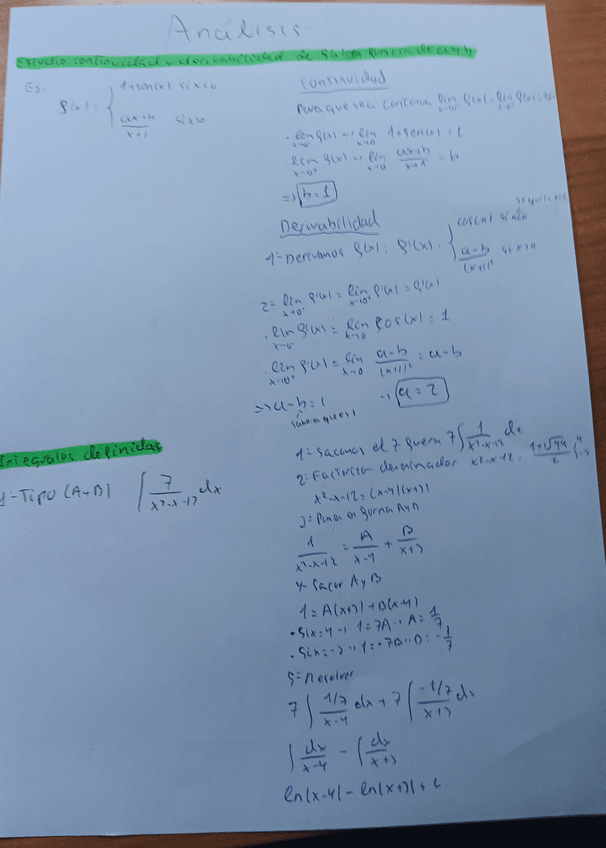 Análisis
Estudio continuidad y derivabilidad de f(x) en función de a y b
Ej:
f(x) = { 1+sen(x) si x≤0
ax+b / x+1 si x>0
Continuidad
Para que sea continua lim x→0⁻ f(x) = lim x→0⁺ f(x) =
· lim x→0⁻ f(x) → lim x→0 1+sen(x) = 1
· lim x→0⁺ f(x) → lim x→0 ax+b / x+1 = b
⇒ b=1
Derivabilidad
1º Derivamos f(x): f'(x) = { cos(x) si x≤0
a-b / (x+1)² si x>0
2º lim x→0⁻ f'(x) = lim x→0⁺ f'(x) = f'(x)
· lim x→0⁻ f'(x) = lim x→0 cos(x) = 1
· lim x→0⁺ f'(x) = lim x→0 a-b / (x+1)² = a-b
⇒ a-b=1 → a=2
sabemos que es 1
Integrales definidas
1-Tipo (A y B) ∫ 7 / x²-x-12 dx
1º Sacamos el 7 fuera 7∫ 1 / x²-x-12 dx
2º Factorizar denominador x²-x-12 = 1±√49 / 2 4 -3
x²-x-12 = (x-4)(x+3)
3º Poner en forma A y B
1 / x²-x-12 = A / x-4 + B / x+3
4º Sacar A y B
1 = A(x+3) + B(x-4)
· Si x=4 → 1=7A → A= 1/7
· Si x=-3 → 1=-7B → B= -1/7
5º Resolver
7∫ 1/7 / x-4 dx + 7∫ -1/7 / x+3 dx
∫ dx / x-4 - ∫ dx / x+3
ln|x-4| - ln|x+3| + C